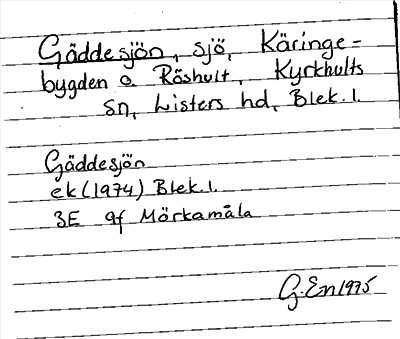 Gäddesjön, sjö, Käringe-
bygden o. Röshult, Kyrkhults
sn, Listers hd, Blek. l.
Gäddesjön
ek (1974) Blek. l.
3E 9f Mörkamåla
G. En 1975